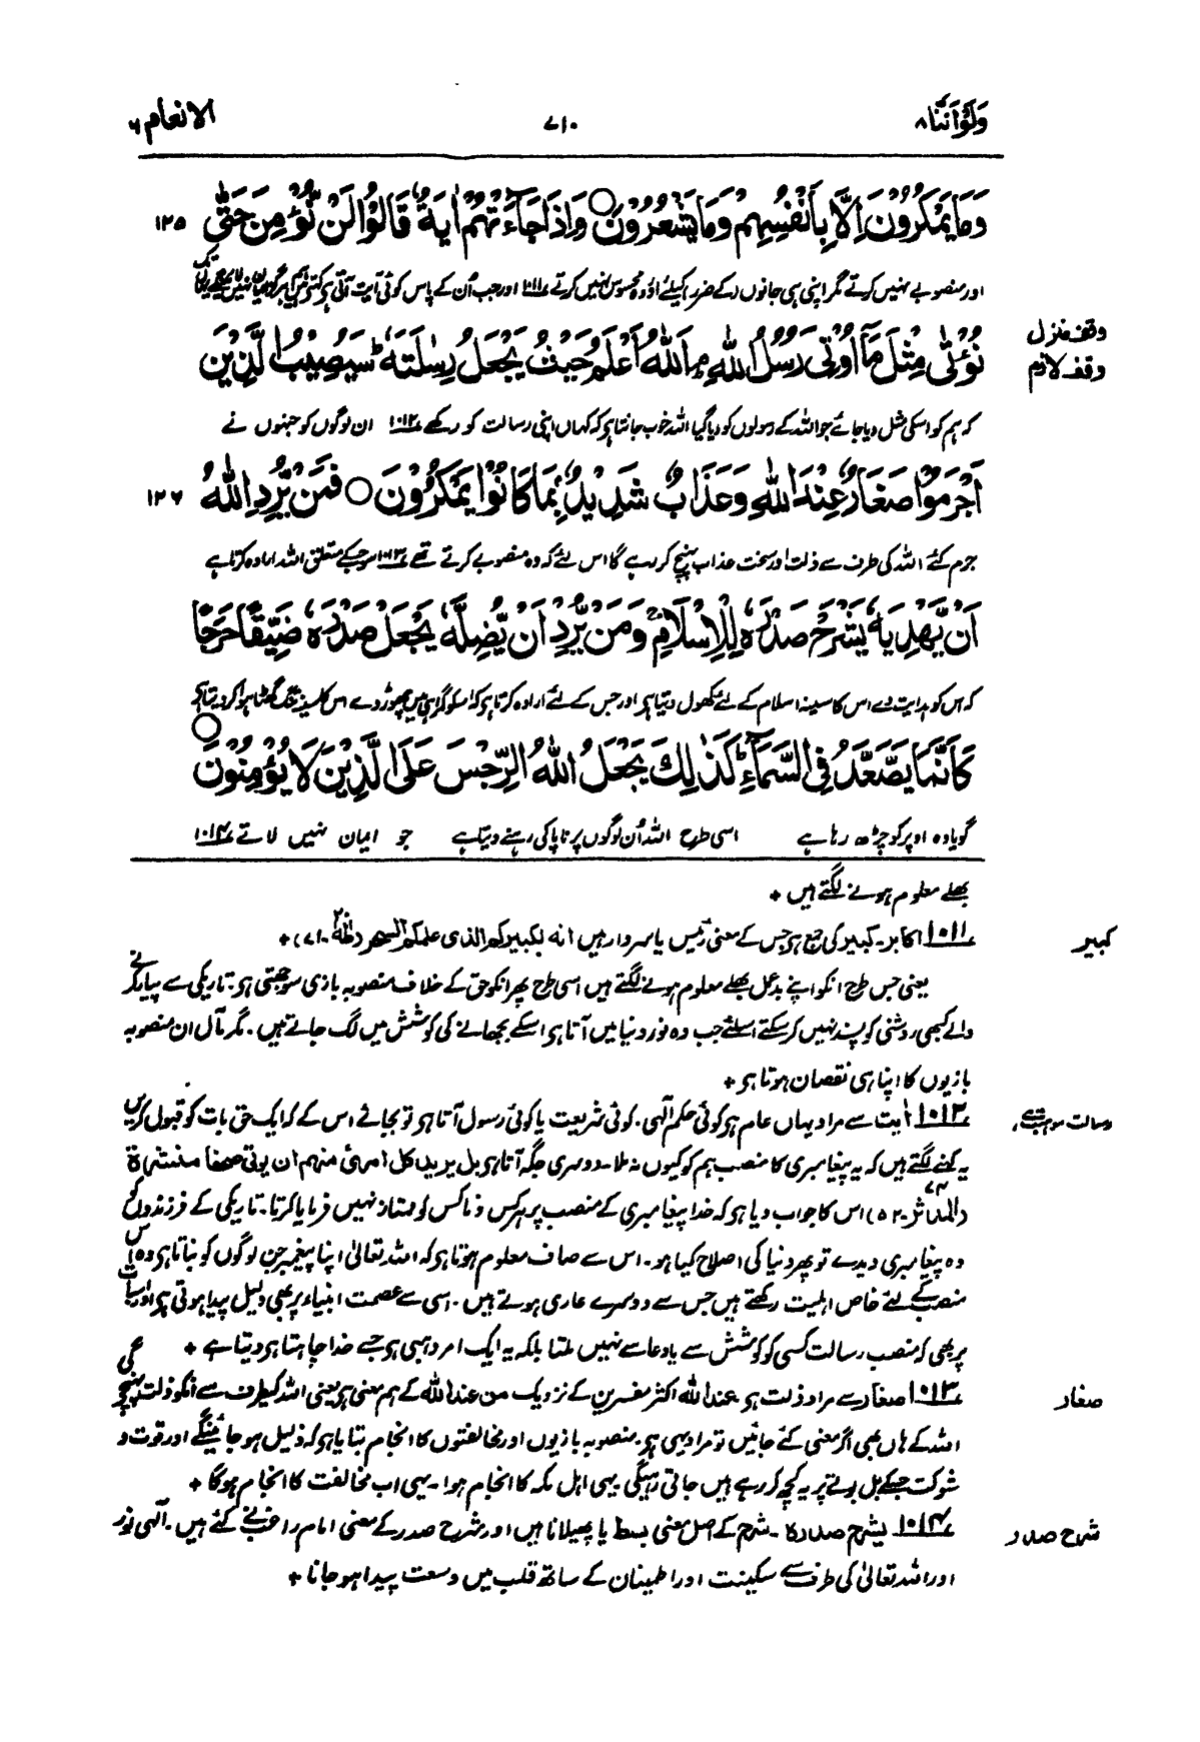 ولو اننا ۸
۷۱۰
الانعام ۶
وَمَا يَمْكُرُوْنَ اِلَّا بِاَنْفُسِهِمْ وَمَا يَشْعُرُوْنَ ○ وَاِذَا جَآءَتْهُمْ اٰيَةٌ قَالُوْا لَنْ نُّؤْمِنَ حَتّٰى
۱۲۵
اور منصوبے نہیں کرتے مگر اپنی ہی جانوں (کے ضرر) کیلئے اور وہ محسوس نہیں کرتے ۱۰۱۱ اور جب اُن کے پاس کوئی آیت آتی ہے کہتے ہیں ہم ہرگز ایمان نہیں لائینگے یہاں تک
نُؤْتٰى مِثْلَ مَآ اُوْتِيَ رُسُلُ اللّٰهِ ۘ اَللّٰهُ اَعْلَمُ حَيْثُ يَجْعَلُ رِسٰلَتَهٗ ؕ سَيُصِيْبُ الَّذِيْنَ
وقف منزل
وقف لازم
کہ ہم کو اسکی مثل دیا جائے جو اللہ کے رسولوں کو دیا گیا اللہ خوب جانتا ہے کہ کہاں اپنی رسالت کو رکھے ۱۰۱۲ ان لوگوں کو جنہوں نے
اَجْرَمُوْا صَغَارٌ عِنْدَ اللّٰهِ وَعَذَابٌ شَدِيْدٌۢ بِمَا كَانُوْا يَمْكُرُوْنَ ○ فَمَنْ يُّرِدِ اللّٰهُ
۱۲۶
جرم کئے اللہ کی طرف سے ذلت اور سخت عذاب پہنچ کر رہے گا اس لئے کہ وہ منصوبے کرتے تھے ۱۰۱۳ سو جسکے متعلق اللہ ارادہ کرتا ہے
اَنْ يَّهْدِيَهٗ يَشْرَحْ صَدْرَهٗ لِلْاِسْلَامِ ۚ وَمَنْ يُّرِدْ اَنْ يُّضِلَّهٗ يَجْعَلْ صَدْرَهٗ ضَيِّقًا حَرَجًا
کہ اس کو ہدایت دے اس کا سینہ اسلام کے لئے کھول دیتا ہے اور جس کے لئے ارادہ کرتا ہے کہ اسکو گمراہی میں چھوڑ دے اس کا سینہ تنگ گھٹا ہوا کر دیتا ہے
كَاَنَّمَا يَصَّعَّدُ فِي السَّمَآءِ ؕ كَذٰلِكَ يَجْعَلُ اللّٰهُ الرِّجْسَ عَلَى الَّذِيْنَ لَا يُؤْمِنُوْنَ ○
گویا وہ اوپر کو چڑھ رہا ہے اسی طرح اللہ اُن لوگوں پر ناپاکی رہنے دیتا ہے جو ایمان نہیں لاتے ۱۰۱۴
بھلے معلوم ہونے لگتے ہیں +
کبیر
۱۰۱۱ اکابر۔ کبیر کی جمع ہے جس کے معنی رئیس یا سردار ہیں انه لكبيركم الذي علمكم السحر (طٰهٰ ۲۰۔۷۱) +
یعنی جس طرح انکو اپنے بدعمل بھلے معلوم ہونے لگتے ہیں اسی طرح پھر انکو حق کے خلاف منصوبہ بازی سوجھتی ہے۔ تاریکی سے پیار کرنے
والے کبھی روشنی کو پسند نہیں کر سکتے اسلئے جب وہ نور دنیا میں آتا ہے اسکے بجھانے کی کوشش میں لگ جاتے ہیں۔ مگر مآل ان منصوبہ
بازیوں کا اپنا ہی نقصان ہوتا ہے +
رسالت موہبت ہے
۱۰۱۲ آیت سے مراد یہاں عام ہے کوئی حکم الٰہی۔ کوئی شریعت یا کوئی رسول آتا ہے تو بجائے اس کے کہ ایک حق بات کو قبول کریں
یہ کہنے لگتے ہیں کہ یہ پیغامبری کا منصب ہم کو کیوں نہ ملا۔ دوسری جگہ آتا ہے بل يريد كل امرئ منهم ان يؤتى صحفا منشرة
(المدثر ۷۴۔ ۵۲) اس کا جواب دیا ہے کہ خدا پیغامبری کے منصب پر ہر کس و ناکس کو ممتاز نہیں فرمایا کرتا۔ تاریکی کے فرزندوں کو
وہ پیغامبری دیدے تو پھر دنیا کی اصلاح کیا ہو۔ اس سے صاف معلوم ہوتا ہے کہ اللہ تعالیٰ اپنا پیغمبر جن لوگوں کو بناتا ہے وہ اس
منصب کے لئے خاص اہلیت رکھتے ہیں جس سے دوسرے عاری ہوتے ہیں۔ اسی سے عصمت انبیاء پر بھی دلیل پیدا ہوتی ہے اور اس بات
پر بھی کہ منصب رسالت کسی کو کوشش سے یا دعا سے نہیں ملتا بلکہ یہ ایک امر وہبی ہے جسے خدا چاہتا ہے دیتا ہے +
صغار
۱۰۱۳ صغار سے مراد ذلت ہے عند اللہ اکثر مفسرین کے نزدیک من عند اللہ کے ہم معنی ہے یعنی اللہ کیطرف سے انکو ذلت پہنچے گی
اللہ کے ہاں بھی اگر معنی کئے جائیں تو مراد یہی ہے۔ منصوبہ بازیوں اور مخالفتوں کا انجام بتایا ہے کہ ذلیل ہو جائینگے اور قوت و
شوکت جسکے بل بوتے پر یہ کچھ کر رہے ہیں جاتی رہیگی یہی اہل مکہ کا انجام ہوا۔ یہی اب مخالفت کا انجام ہوگا +
شرح صدر
۱۰۱۴ يشرح صدره۔ شرح کے اصل معنی بسط یا پھیلانا ہیں اور شرح صدر کے معنی امام راغب نے کئے ہیں۔ الٰہی نور
اور اللہ تعالیٰ کی طرف سے سکینت اور اطمینان کے ساتھ قلب میں وسعت پیدا ہو جانا +